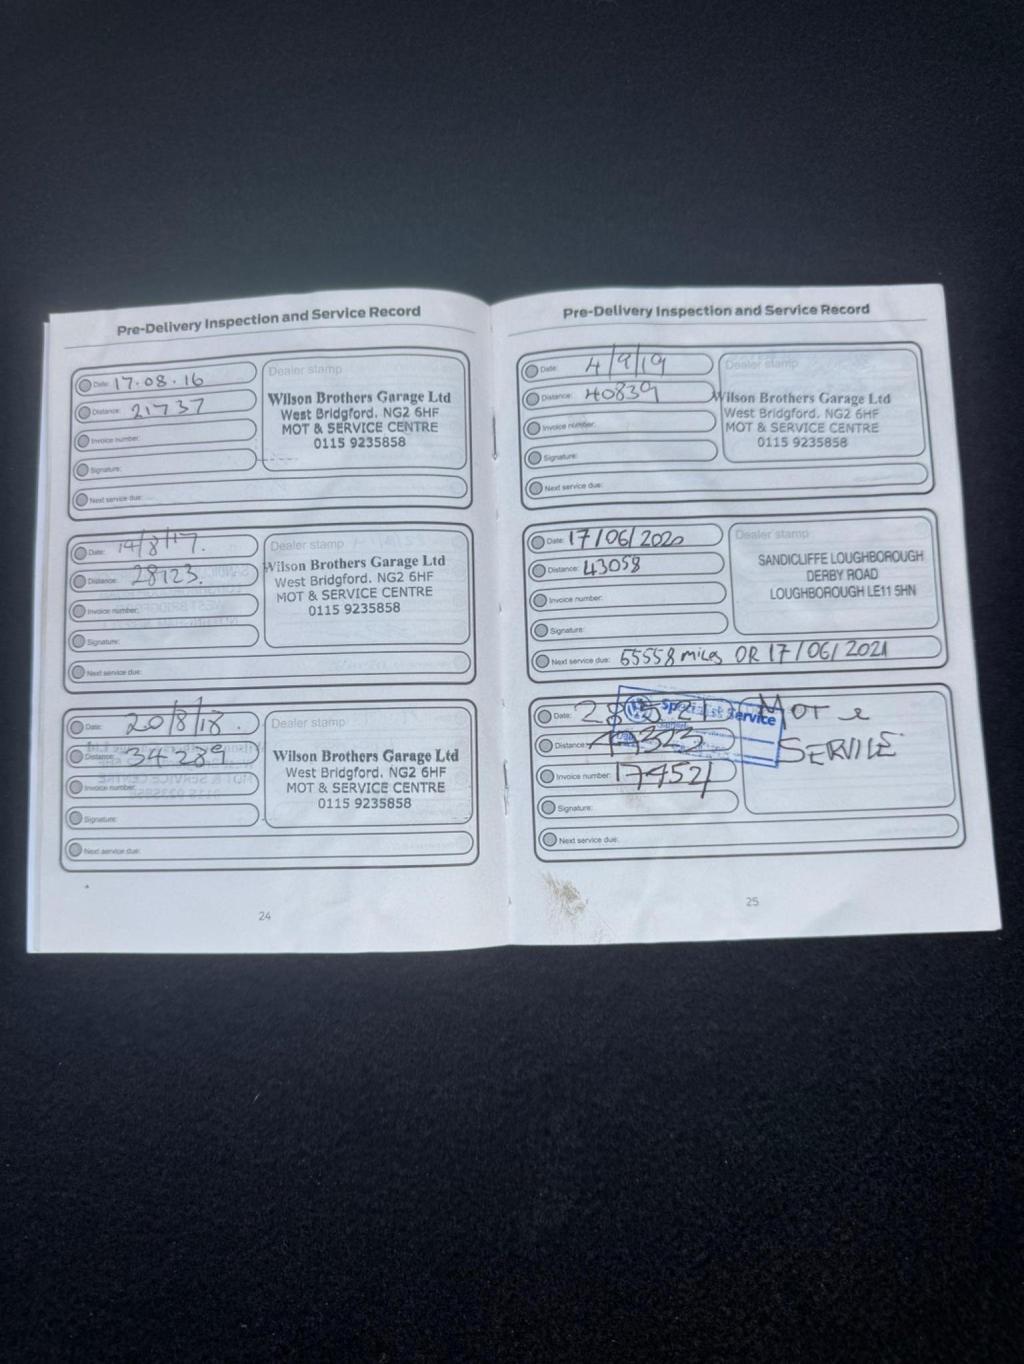 Pre-Delivery Inspection and Service Record
Date: 17.08.16
Distance: 21737
Invoice number:
Signature:
Next service due:
Dealer stamp
Wilson Brothers Garage Ltd
West Bridgford. NG2 6HF
MOT & SERVICE CENTRE
0115 9235858
Date: 14/8/17.
Distance: 28123.
Invoice number:
Signature:
Next service due:
Dealer stamp
Wilson Brothers Garage Ltd
West Bridgford. NG2 6HF
MOT & SERVICE CENTRE
0115 9235858
Date: 20/8/18.
Distance: 34289
Invoice number:
Signature:
Next service due:
Dealer stamp
Wilson Brothers Garage Ltd
West Bridgford. NG2 6HF
MOT & SERVICE CENTRE
0115 9235858
24
Pre-Delivery Inspection and Service Record
Date: 4/9/19
Distance: 40839
Invoice number:
Signature:
Next service due:
Dealer stamp
Wilson Brothers Garage Ltd
West Bridgford. NG2 6HF
MOT & SERVICE CENTRE
0115 9235858
Date: 17/06/2020
Distance: 43058
Invoice number:
Signature:
Next service due: 55558 miles OR 17/06/2021
Dealer stamp
SANDICLIFFE LOUGHBOROUGH
DERBY ROAD
LOUGHBOROUGH LE11 5HN
Date:
Distance:
Invoice number: 174521
Signature:
Next service due:
Specialist Service
MOT &
SERVICE
25